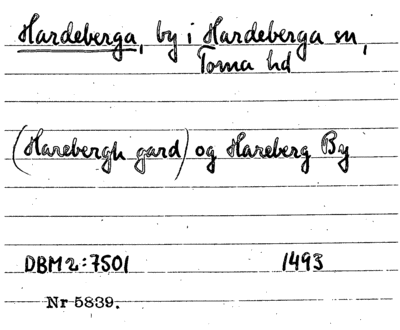 Hardeberga, by i Hardeberga sn,
Torna hd
(Harebergh gard) og Hareberg By
DBM 2:7501 1493
Nr 5839.